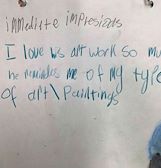 immediatte impresions
I love his art work so mu
he reminds me of my type
of art\Paintings